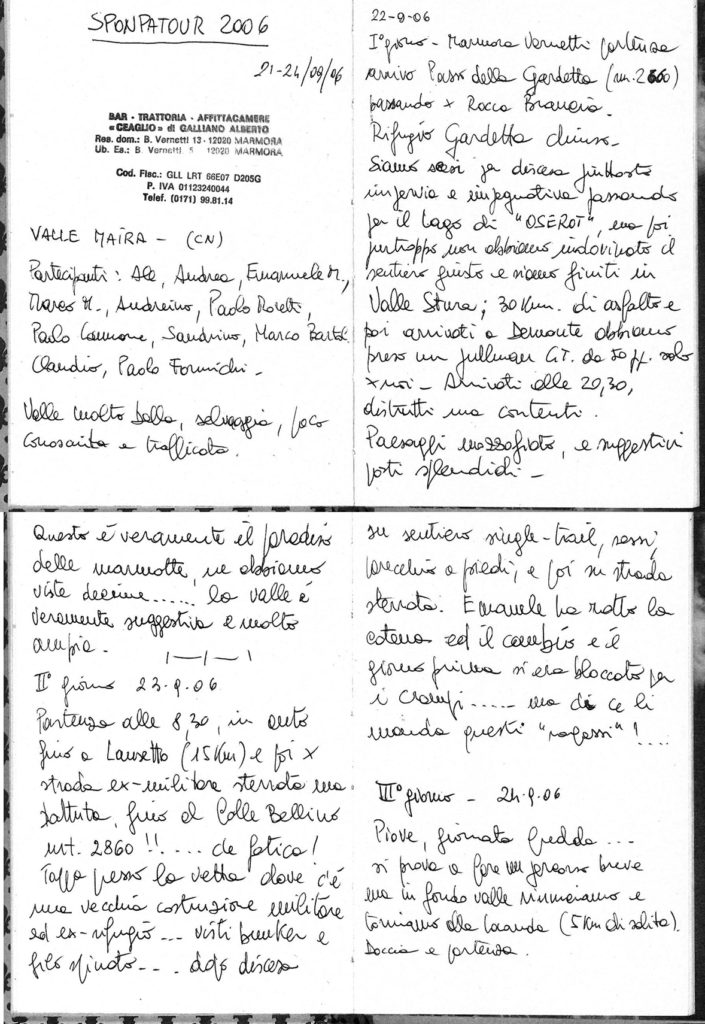 SPONPATOUR 2006
21-24/09/06
BAR - TRATTORIA - AFFITTACAMERE
«CEAGLIO» di GALLIANO ALBERTO
Res. dom.: B. Vernetti 13 - 12020 MARMORA
Ub. Es.: B. Vernetti 5 12020 MARMORA
Cod. Fisc.: GLL LRT 66E07 D205G
P. IVA 01123240044
Telef. (0171) 99.81.14
VALLE MAIRA - (CN)
Partecipanti: Ale, Andrea, Emanuele M.,
Marco M., Andreino, Paolo
Paolo Sandrino, Marco
Claudio, Paolo Formichi -
Valle molto bella, selvaggia, poco
conosciuta e trafficata.
22-9-06
I° giorno - Marmora Vernetti partenza
arrivo Passo della Gardetta (m. 2)
passando x Rocca Brancia.
Rifugio Gardetta chiuso -
Siamo scesi per discesa piuttosto
impervia e impegnativa passando
per il Lago di "OSEROT", ma poi
purtroppo non abbiamo indovinato il
sentiero giusto e siamo finiti in
Valle Stura; 30 Km. di asfalto e
poi arrivati a Demonte abbiamo
preso un pullman GT. da 50 pp. solo
x noi - Arrivati alle 20,30,
distrutti ma contenti.
Paesaggi mozzafiato, e suggestivi
posti splendidi -
Questo è veramente il paradiso
delle marmotte, ne abbiamo
viste decine...... la valle è
veramente suggestiva e molto
ampia.
II° giorno 23-9-06
Partenza alle 8,30, in auto
fino a Lausetto (15 Km) e poi x
strada ex-militare sterrata ma
battuta, fino al Colle Bellino
mt. 2860 !!.... che fatica!
Tappa presso la vetta dove c'è
una vecchia costruzione militare
ed ex-rifugio... visti bunker e
filo spinato... dopo discesa
su sentiero single-trail, sassi,
parecchio a piedi, e poi su strada
sterrata. Emanuele ha rotto la
catena ed il cambio e il
giorno prima si era bloccato per
i crampi..... ma chi ce li
manda questi "ragassi"!....
III° giorno - 24-9-06
Piove, giornata fredda...
si prova a fare un percorso breve
ma in fondo valle rinunciamo e
torniamo alla locanda (5 Km di salita).
Doccia e partenza.